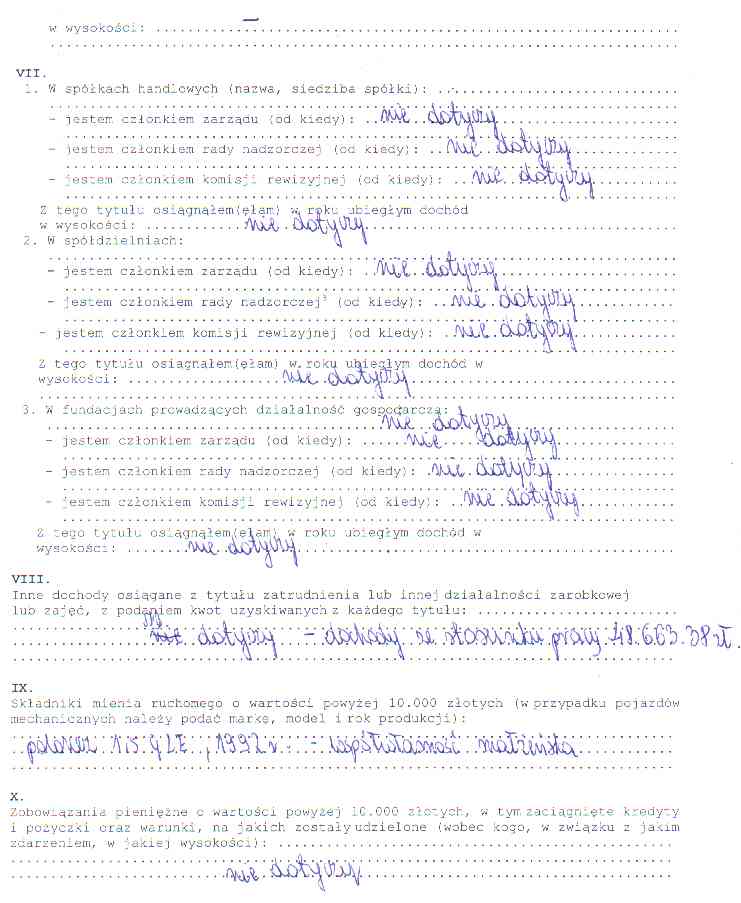 w wysokości: ..... –
VII.
1. W spółkach handlowych (nazwa, siedziba spółki):
- jestem członkiem zarządu (od kiedy): nie dotyczy
- jestem członkiem rady nadzorczej (od kiedy): nie dotyczy
- jestem członkiem komisji rewizyjnej (od kiedy): nie dotyczy
Z tego tytułu osiągnąłem(ęłam) w roku ubiegłym dochód
w wysokości: nie dotyczy
2. W spółdzielniach:
- jestem członkiem zarządu (od kiedy): nie dotyczy
- jestem członkiem rady nadzorczej³ (od kiedy): nie dotyczy
- jestem członkiem komisji rewizyjnej (od kiedy): nie dotyczy
Z tego tytułu osiągnąłem(ęłam) w roku ubiegłym dochód w
wysokości: nie dotyczy
3. W fundacjach prowadzących działalność gospodarczą:
nie dotyczy
- jestem członkiem zarządu (od kiedy): nie dotyczy
- jestem członkiem rady nadzorczej (od kiedy): nie dotyczy
- jestem członkiem komisji rewizyjnej (od kiedy): nie dotyczy
Z tego tytułu osiągnąłem(ęłam) w roku ubiegłym dochód w
wysokości: nie dotyczy
VIII.
Inne dochody osiągane z tytułu zatrudnienia lub innej działalności zarobkowej
lub zajęć, z podaniem kwot uzyskiwanych z każdego tytułu:
nie dotyczy - dochody ze stosunku pracy 48.663.38 zł.
IX.
Składniki mienia ruchomego o wartości powyżej 10.000 złotych (w przypadku pojazdów
mechanicznych należy podać markę, model i rok produkcji):
polonez 1,5 GLE, 1992 r. - współwłasność małżeńska
X.
Zobowiązania pieniężne o wartości powyżej 10.000 złotych, w tym zaciągnięte kredyty
i pożyczki oraz warunki, na jakich zostały udzielone (wobec kogo, w związku z jakim
zdarzeniem, w jakiej wysokości):
nie dotyczy